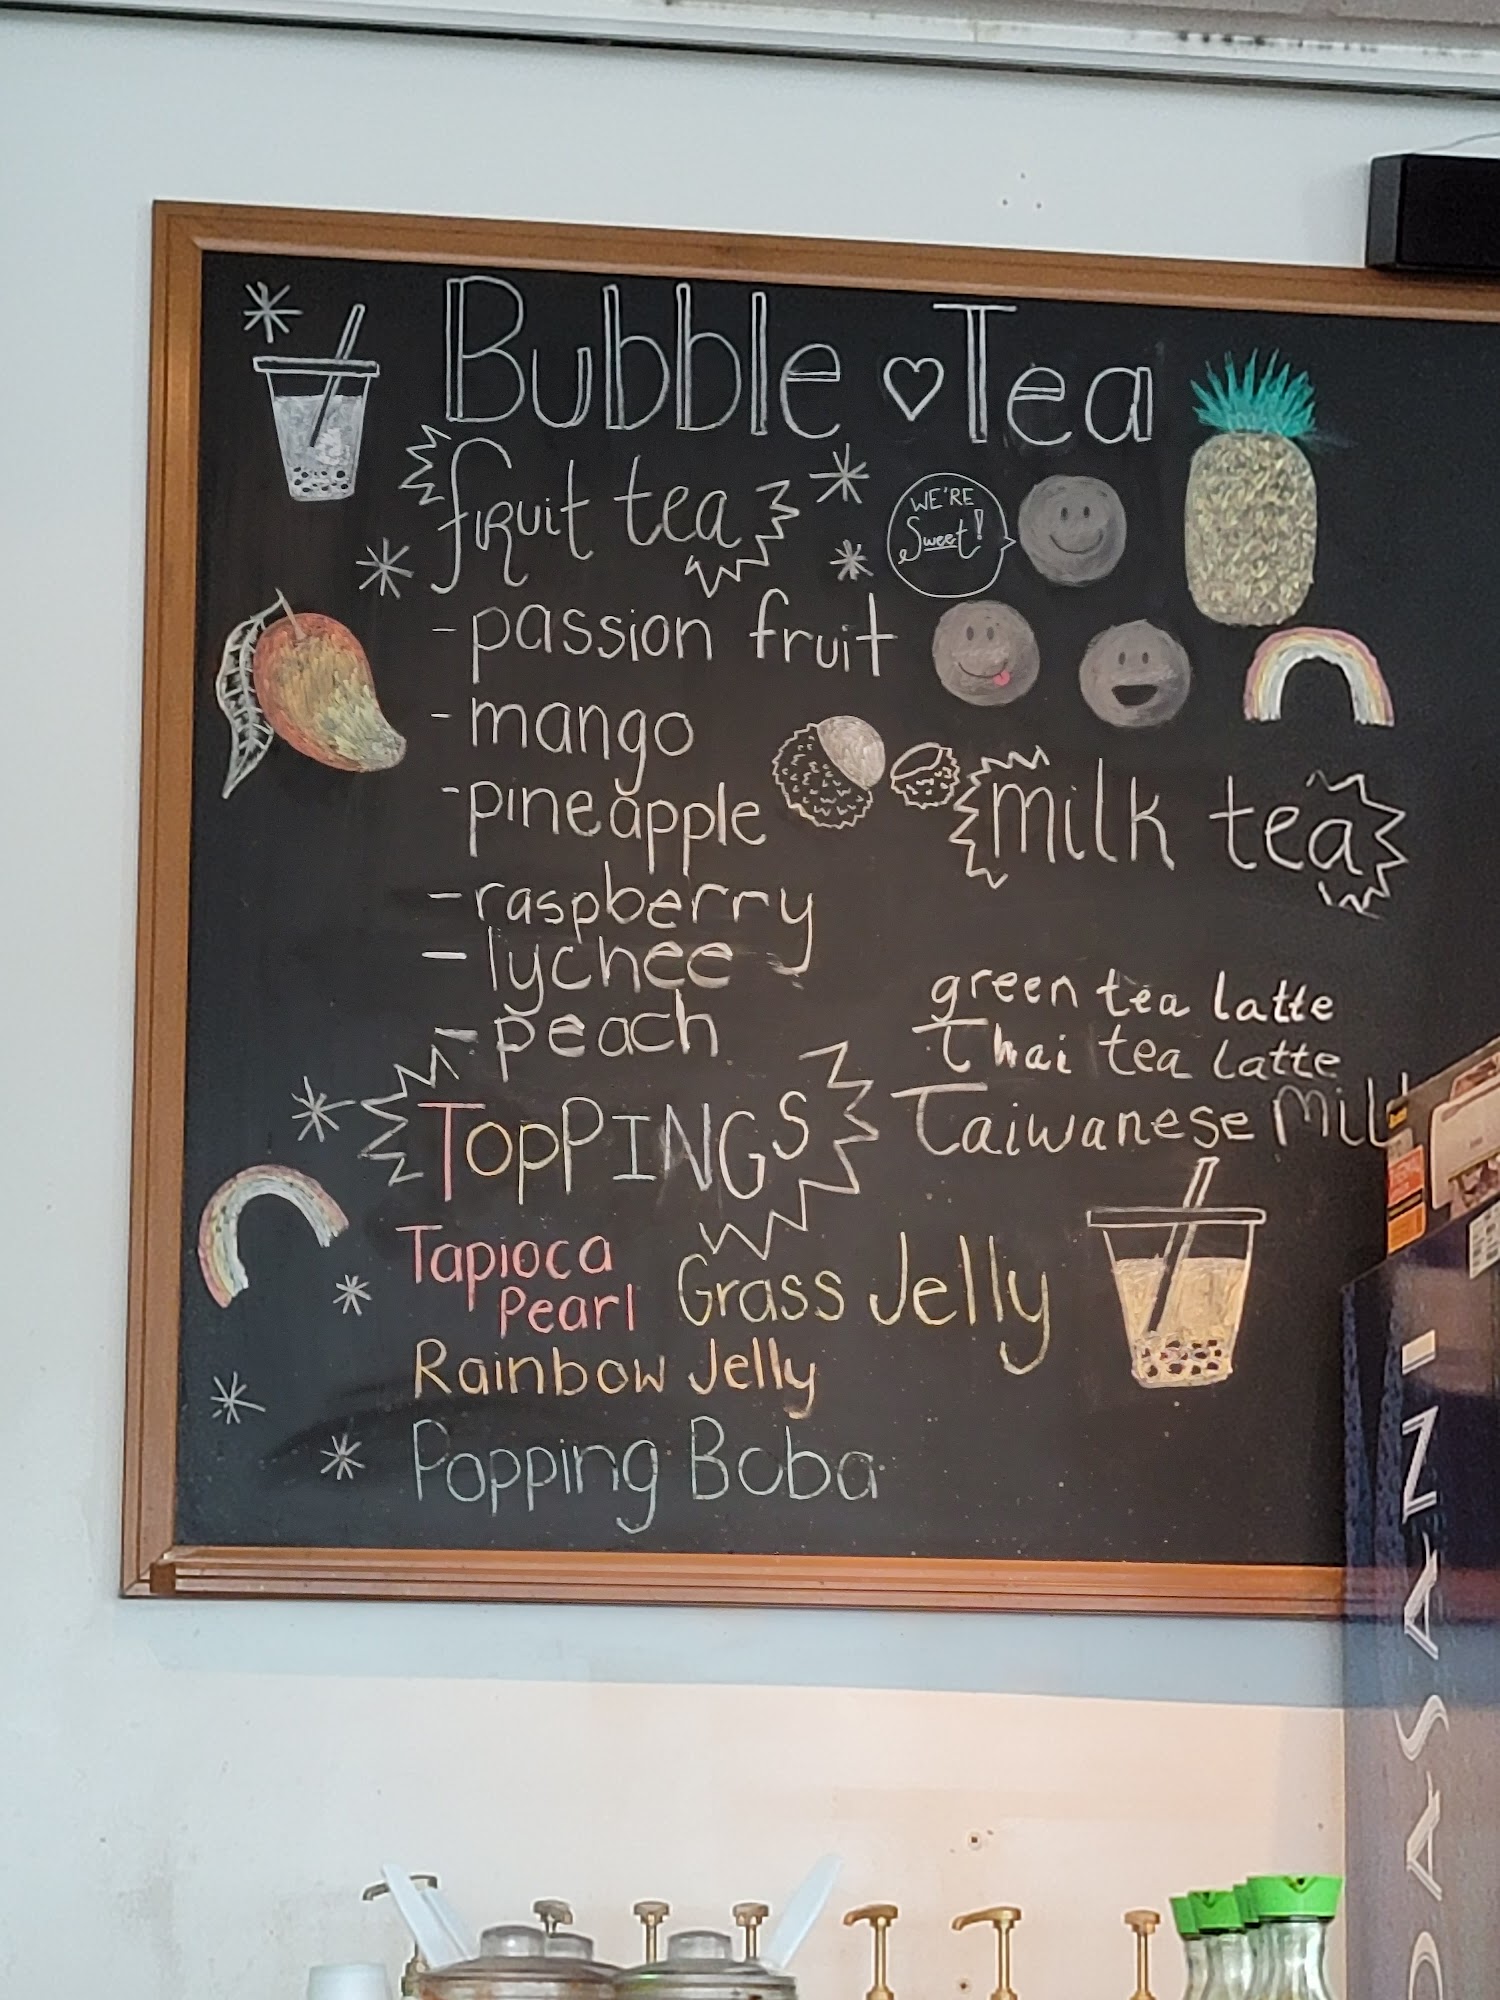 Bubble ♡ Tea
fruit tea
WE'RE
Sweet!
- passion fruit
- mango
- pineapple
- raspberry
- lychee
- peach
milk tea
green tea latte
Thai tea latte
Taiwanese Mil
TOPPINGS
Tapioca
Pearl
Grass Jelly
Rainbow Jelly
Popping Boba
DASANI